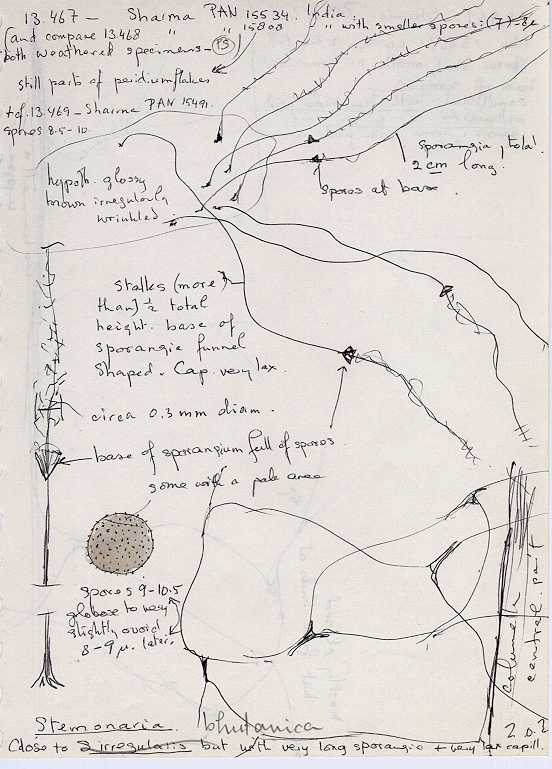 13.467 — Sharma PAN 15534. India
(and compare 13468 " " 15808 " with smaller spores: (7)-8
both weathered specimens -
still parts of peridiumflakes
+ cf. 13.469 - Sharma PAN 15491.
spores 8.5-10.
sporangia, total
2 cm long.
spores at base.
hypoth. glossy
brown irregularly
wrinkled
Stalks (more
than) ½ total
height. base of
sporangia funnel
shaped. Cap. very lax.
circa 0.3 mm diam.
base of sporangium full of spores
some with a pale area
spores 9-10.5
globose to very
slightly ovoid
8-9 µ. later.
columella
central part
Stemonaria bhutanica
Close to irregularis but with very long sporangia + very lax capill.